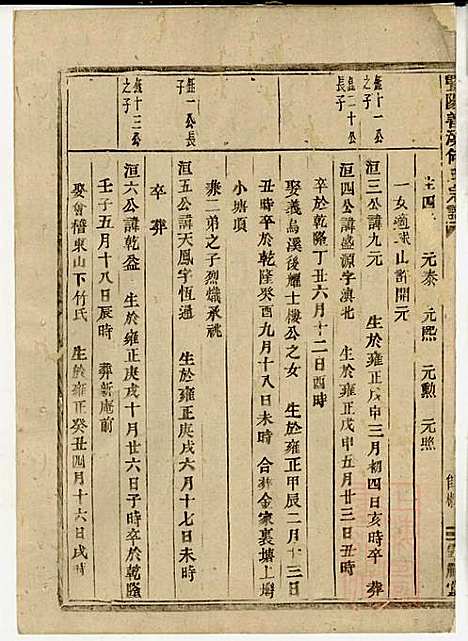 暨陽善溪何氏宗譜
生四 元泰 元熙 元勲 元照
一女適球山許開元
鈺十一公之子
洹三公諱九元 生於雍正戊申三月初四日亥時卒 葬
鈺二十公長子
洹四公諱盛源字滇北 生於雍正戊申五月廿三日丑時
卒於乾隆丁丑六月十二日酉時
娶義烏溪後耀士樓公之女 生於雍正甲辰二月十三日
丑時卒於乾隆癸酉九月十八日未時 合葬金家裏塘上塝
小塘項
鈺一公長子
洹五公諱天鳳字恆通 生於雍正庚戌六月十七日未時
継二弟之子烈熾承祧
卒 葬
鈺十三公之子
洹六公諱乾益 生於雍正庚戌十月廿六日子時卒於乾隆
壬子五月十八日辰時 葬新庵前
娶會稽東山下竹氏 生於雍正癸丑四月十六日戌時